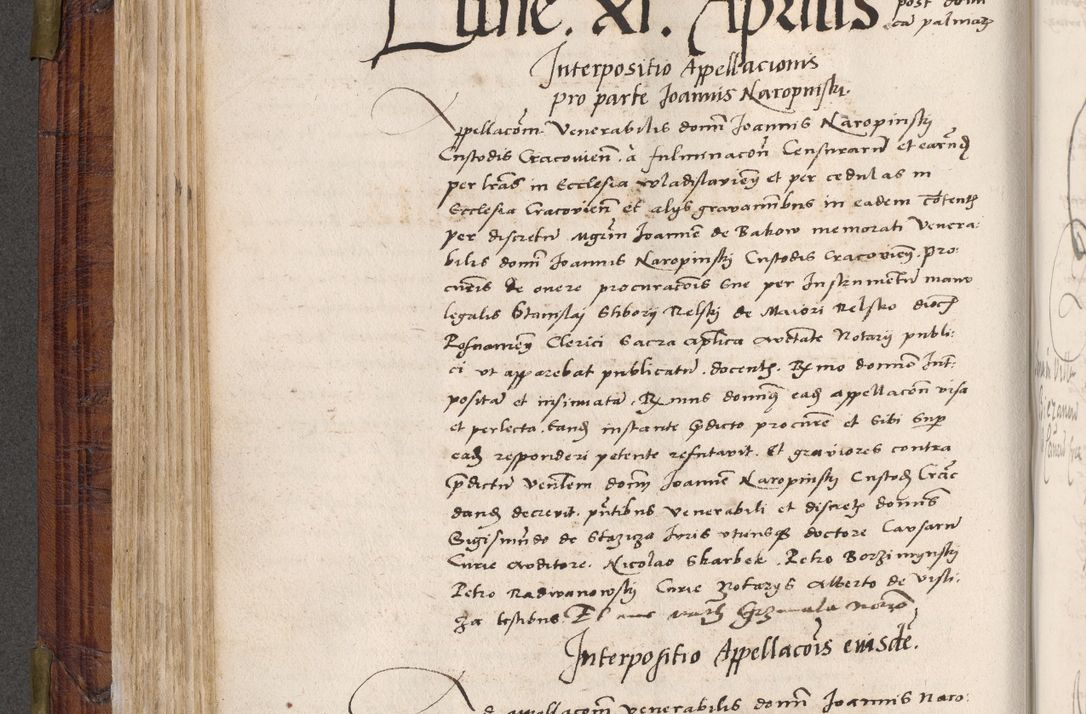 Lune. XI. Aprilis post domi
ca palmarz
Interpositio Appellacionis
pro parte Joannis Naropinski.
Appellacom̃. Venerabilis domi Joannis Naropinskj
Custodis Cracouien̄. à fulminacon̄ Censurarū et earūd
per lrās in Ecclesia wladislauien̄ et per cedulas in
Ecclesia Cracouien̄ et alys grauaminibus in eadem cōtentȝ
per discretū mgrm Joannē de Bakow memorati Venera:
bilis domi Joannis Naropinskj Custodis Cracouien̄. pro:
curis de onere procuracōis sue per Instrumētū manu
legalis Stanislaj Stiborij Relskj de Maiori Relsko diocȝ
Posnanien̄ Clerici Sacra aplica auctate Notarij publi:
ci ut apparebat publicatū. docentȝ. Rx mo domino Int̄:
posita et insinuata. Rx mus dominȝ eadȝ appellacōn visa
et perlecta. eandȝ instante p̄dicto procure et sibi sup
eadȝ responderi petente refutauit. Et grauiores contra
p̄dictū venlem domi Joannē Naropinskj Custodȝ Crac̄
dandȝ decreuit. pn̄tibus venerabili et discretȝ dominis
Sigismūdo de Stazicza Juris vtriusqȝ doctore Causarū
Curie Auditore. Nicolao Skarbek. Petro Borzimynskj
Petro Radwanowskj Curie Notarys Alberto de Visti.
za testibus. Et me Grzimala Notro
Interpositio Appellacōis eiusdē.
d appellacom̄ venerabilis domi Joannis Naro: